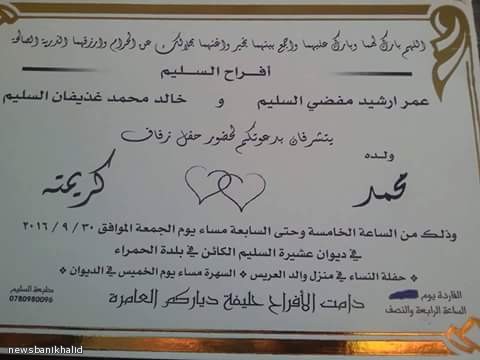 اللهم بارك لهما وبارك عليهما واجمع بينهما بخير واغنهما بحلالك عن الحرام وارزقهما الذرية الصالحة
أفراح السليم
عمر ارشيد مفضي السليم و خالد محمد غذيفان السليم
يتشرفان بدعوتكم لحضور حفل زفاف
ولده
محمد كريمته
وذلك من الساعة الخامسة وحتى السابعة مساء يوم الجمعة الموافق ٣٠ / ٩ / ٢٠١٦
في ديوان عشيرة السليم الكائن في بلدة الحمراء
حفلة النساء في منزل والد العريس السهرة مساء يوم الخميس في الديوان
الفاردة يوم
الساعة الرابعة والنصف
دامت الأفراح حليفة دياركم العامرة
مطبعة السليم
0780980096
newsbanikhalid